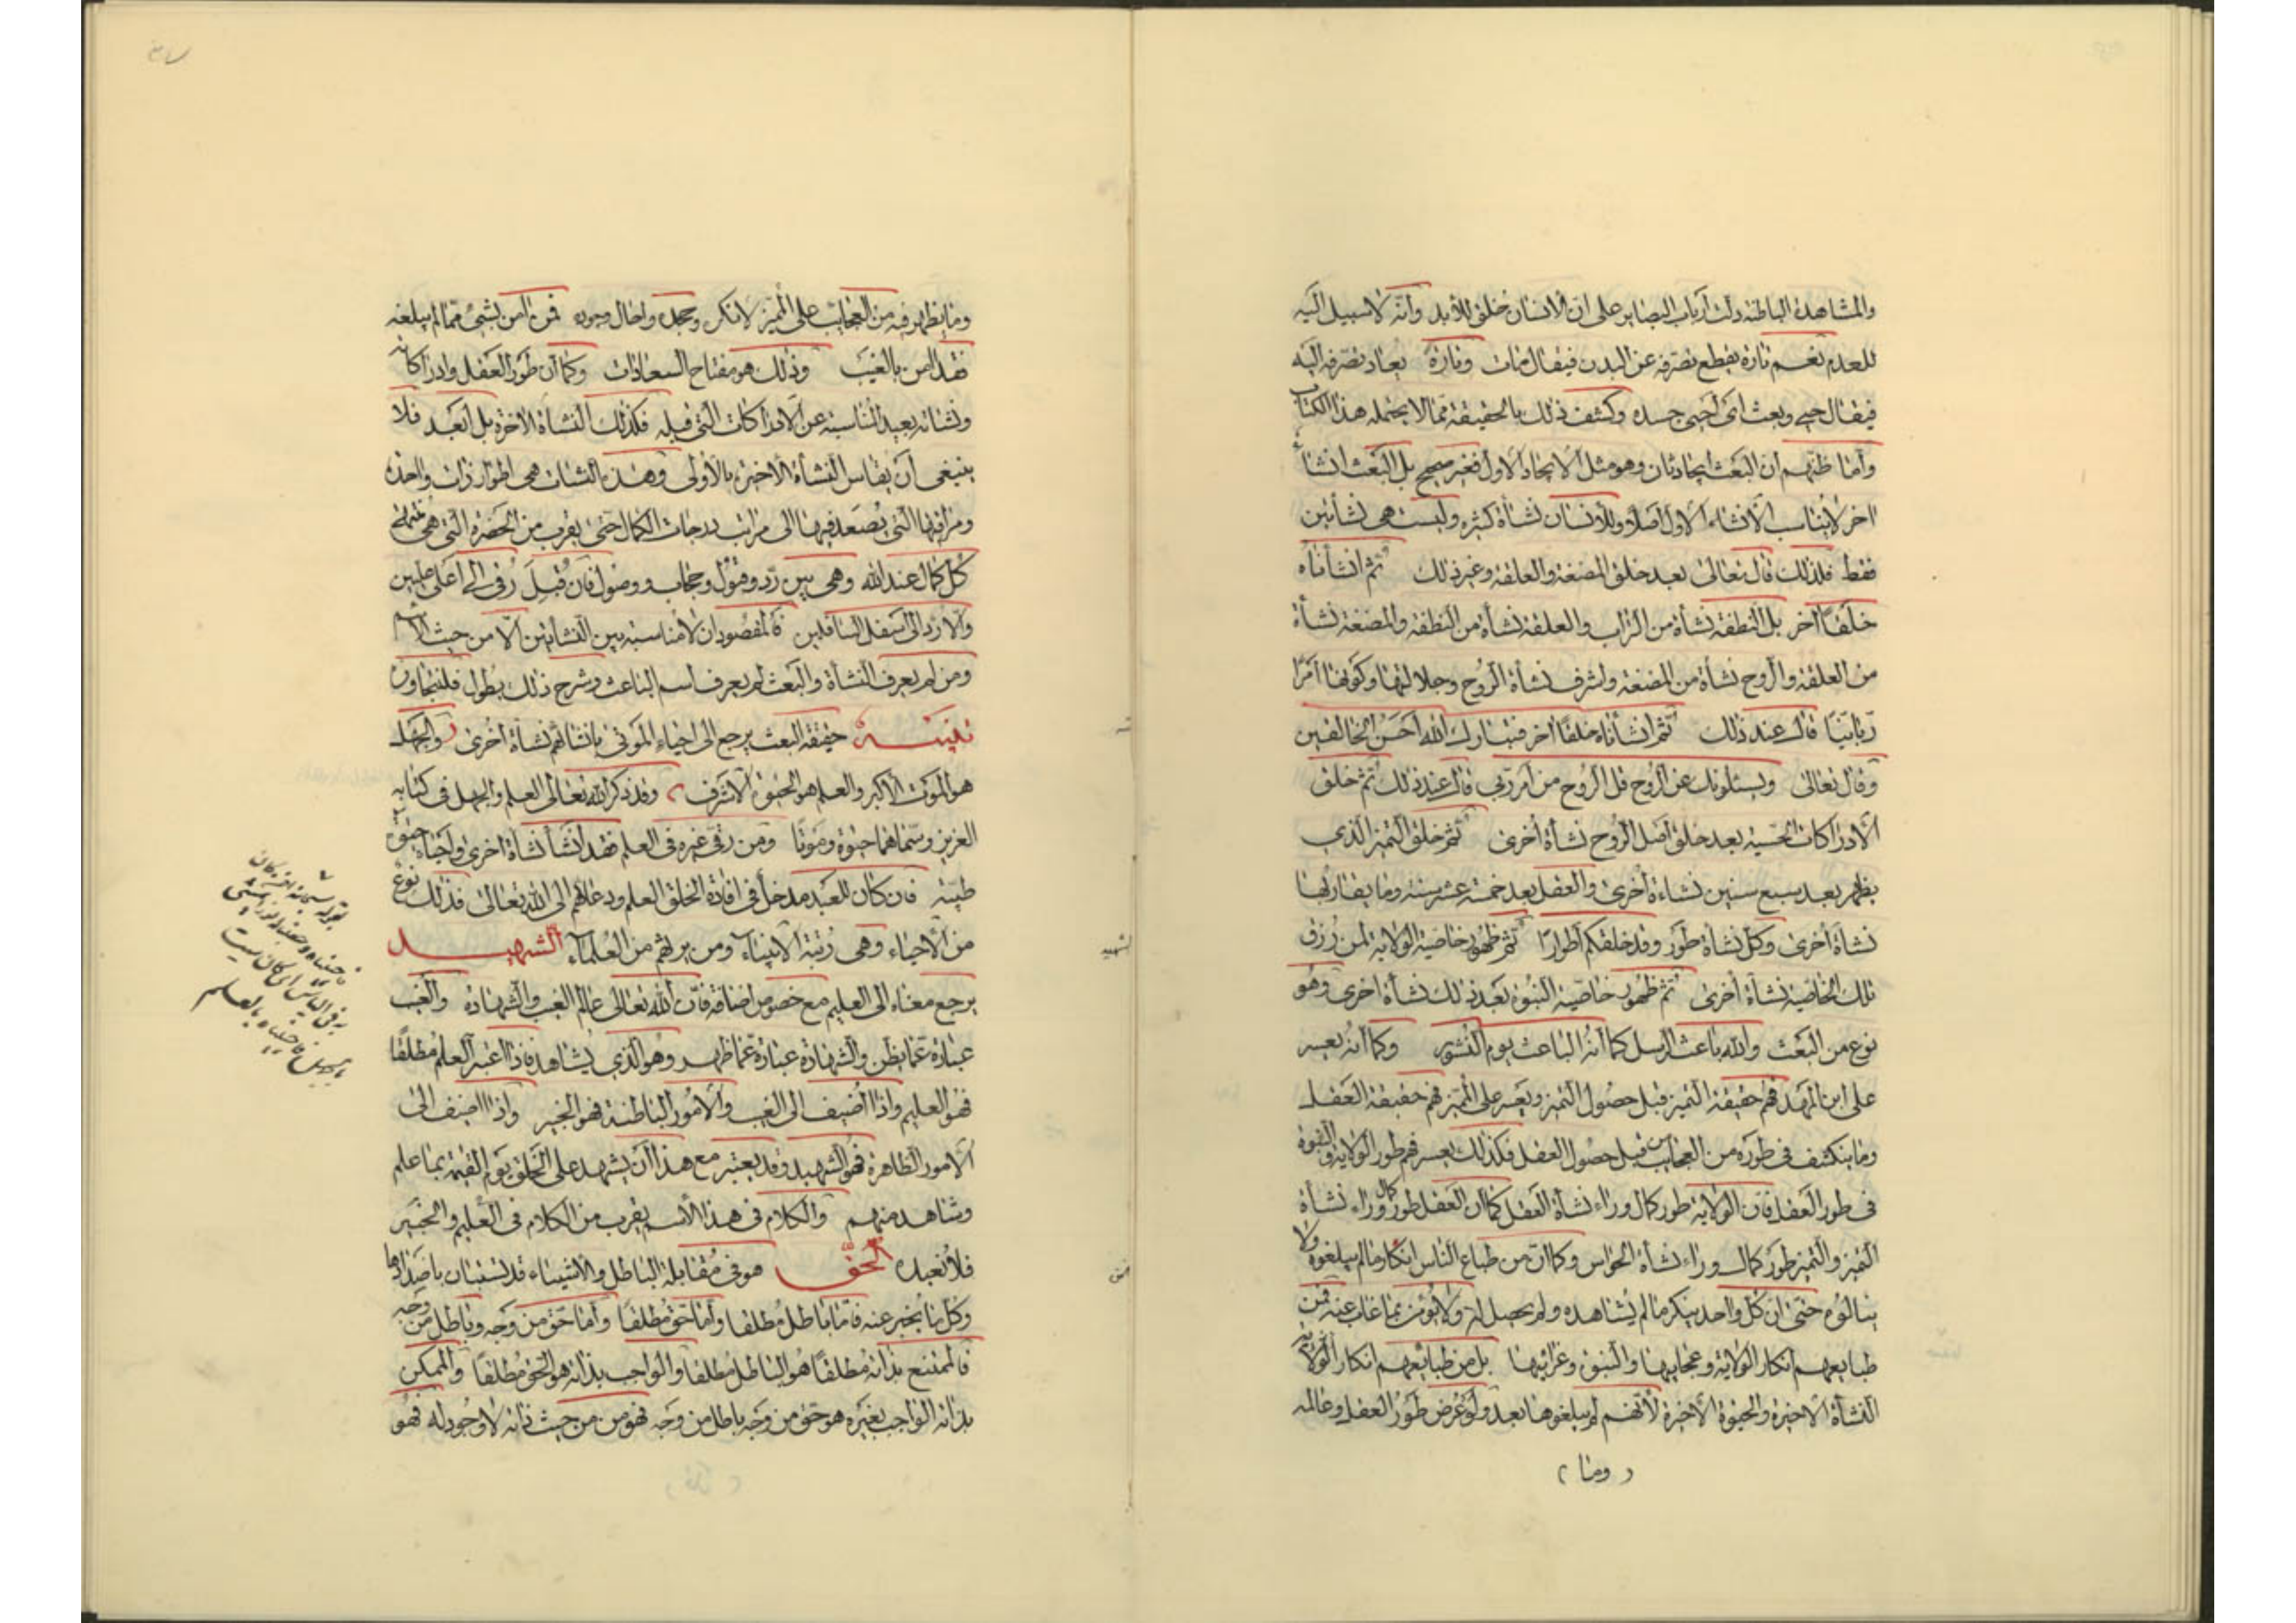 والمشاهدة الباطنة دلت ارباب البصاير على ان الانسان خلق للأبد وانه لا سبيل اليه
للعدم نعم تارة يقطع تصرفه عن البدن فيقال مات وتارة يعاد تصرفه اليه
فيقال حيى وبعث اى أحيى جسده وكشف ذلك بالحقيقة مما لا يحتمله هذا الكتاب
وأما ظنهم ان البعث ايجاد ثان وهو مثل الايجاد الاول فغير صحيح بل البعث انشاء
اخر لا يناسب الانشاء الاول اصلا وللانسان نشأة كثيرة وليست هى نشأتين
فقط فلذلك قال تعالى بعد خلق المضغة والعلقة وغير ذلك ثم انشأناه
خلقا آخر بل النطفة نشأة من التراب والعلقة نشأة من النطفة والمضغة نشأة
من العلقة والروح نشأة من المضغة ولشرف نشأة الروح وجلالتها وكونها امرا
ربانيا قال عند ذلك ثم انشأناه خلقا آخر فتبارك الله أحسن الخالقين
وقال تعالى ويسئلونك عن الروح قل الروح من امر ربي قال عند ذلك ثم خلق
الادراكات الحسية بعد خلق أصل الروح نشأة أخرى ثم خلق التميز الذي
يظهر بعد سبع سنين نشاءة أخرى والعقل بعد خمسة عشر سنة وما يقاربها
نشأة أخرى وكل نشأة طور وقد خلقكم أطوارا ثم ظهور خاصية الولاية لمن رزق
تلك الخاصية نشأة أخرى ثم ظهور خاصية النبوة بعد ذلك نشأة اخرى وهو
نوع من البعث والله باعث الرسل كما أنه الباعث يوم النشور وكما أنه يعسر
على ابن المهد فهم حقيقة التميز قبل حصول التميز ويعسر على المميز فهم حقيقة العقل
وما ينكشف في طوره من العجايب قبل حصول العقل فكذلك يعسر فهم طور الولاية والنبوة
في طور العقل فان الولاية طور كمال وراء نشأة العقل كما ان العقل طور كمال وراء نشأة
التميز والتميز طور كمال وراء نشأة الحواس وكما ان من طباع الناس انكار ما لم يبلغوه ولا
ينالوه حتى ان كل واحد ينكر ما لم يشاهده ولم يحصل له ولا يؤمن بما غاب عنه فمن
طبايعهم انكار الولاية وعجايبها والنبوة وغرائبها بل من طبائعهم انكار
النشأة الاخيرة والحيوة الأخيرة لأنهم لم يبلغوها بعد ولو عرض طور العقل وعالمه
( وما )
وما يظهر فيه من العجائب على المميز لانكره وجحده واحال وجوده فمن آمن بشئ مما لم يبلغه
فقد امن بالغيب وذلك هو مفتاح السعادات وكما أن طور العقل وادراكاته
ونشاته بعيد المناسبة عن الادراكات التى قبله فكذلك النشأة الآخرة بل أبعد فلا
ينبغى أن يقاس النشأة الأخيرة بالأولى وهذه النشات هى اطوار ذات واحدة
ومراقيها التى يصعد فيها الى مراتب درجات الكمال حتى يقرب من الحضرة التى هى منتهى
كل كمال عند الله وهى بين رد وقبول وحجاب ووصول فان قبل رقى الى اعلى عليين
والا رد الى اسفل السافلين فالمقصود ان لا مناسبة بين النشأتين الا من حيث الاسم
ومن لم يعرف النشأة والبعث لم يعرف اسم الباعث وشرح ذلك يطول فلنتجاوز
تنبيه حقيقة البعث يرجع الى احياء الموتى بانشائهم نشأة أخرى والجهل
هو الموت الاكبر والعلم هو الحيوة الاشرف وقد ذكر الله تعالى العلم والجهل فى كتابه
العزيز وسماهما حيوة وموتا ومن رقى غيره فى العلم فقد أنشأ نشأة اخرى وأحياه حيوة
طيبة فان كان للعبد مدخل فى افادة الخلق العلم ودعائهم الى الله تعالى فذلك نوع
من الأحياء وهى رتبة الأنبياء ومن يرثهم من العلماء الشهيد
يرجع معناه الى العليم مع خصوص اضافة فان الله تعالى عالم الغيب والشهادة والغيب
عبارة عما بطن والشهادة عبارة عما ظهر وهو الذي يشاهد فاذا اعتبر العلم مطلقا
فهو العليم واذا أضيف الى الغيب والأمور الباطنة فهو الخبير واذا اضيف الى
الامور الظاهرة فهو الشهيد وقد يعتبر مع هذا أن يشهد على الخلق يوم القيمة بما علم
وشاهد منهم والكلام فى هذا الأسم يقرب من الكلام فى العليم والخبير
فلا نعيده الحق هو فى مقابلة الباطل والأشياء قد تستبان باضدادها
وكل ما يخبر عنه فاما باطل مطلقا وأما حق مطلقا وأما حق من وجه وباطل من وجه
فالممتنع بذاته مطلقا هو الباطل مطلقا والواجب بذاته هو الحق مطلقا والممكن
بذاته الواجب بغيره هو حق من وجه باطل من وجه فهو من من حيث ذاته لا وجود له فهو
الشهيد